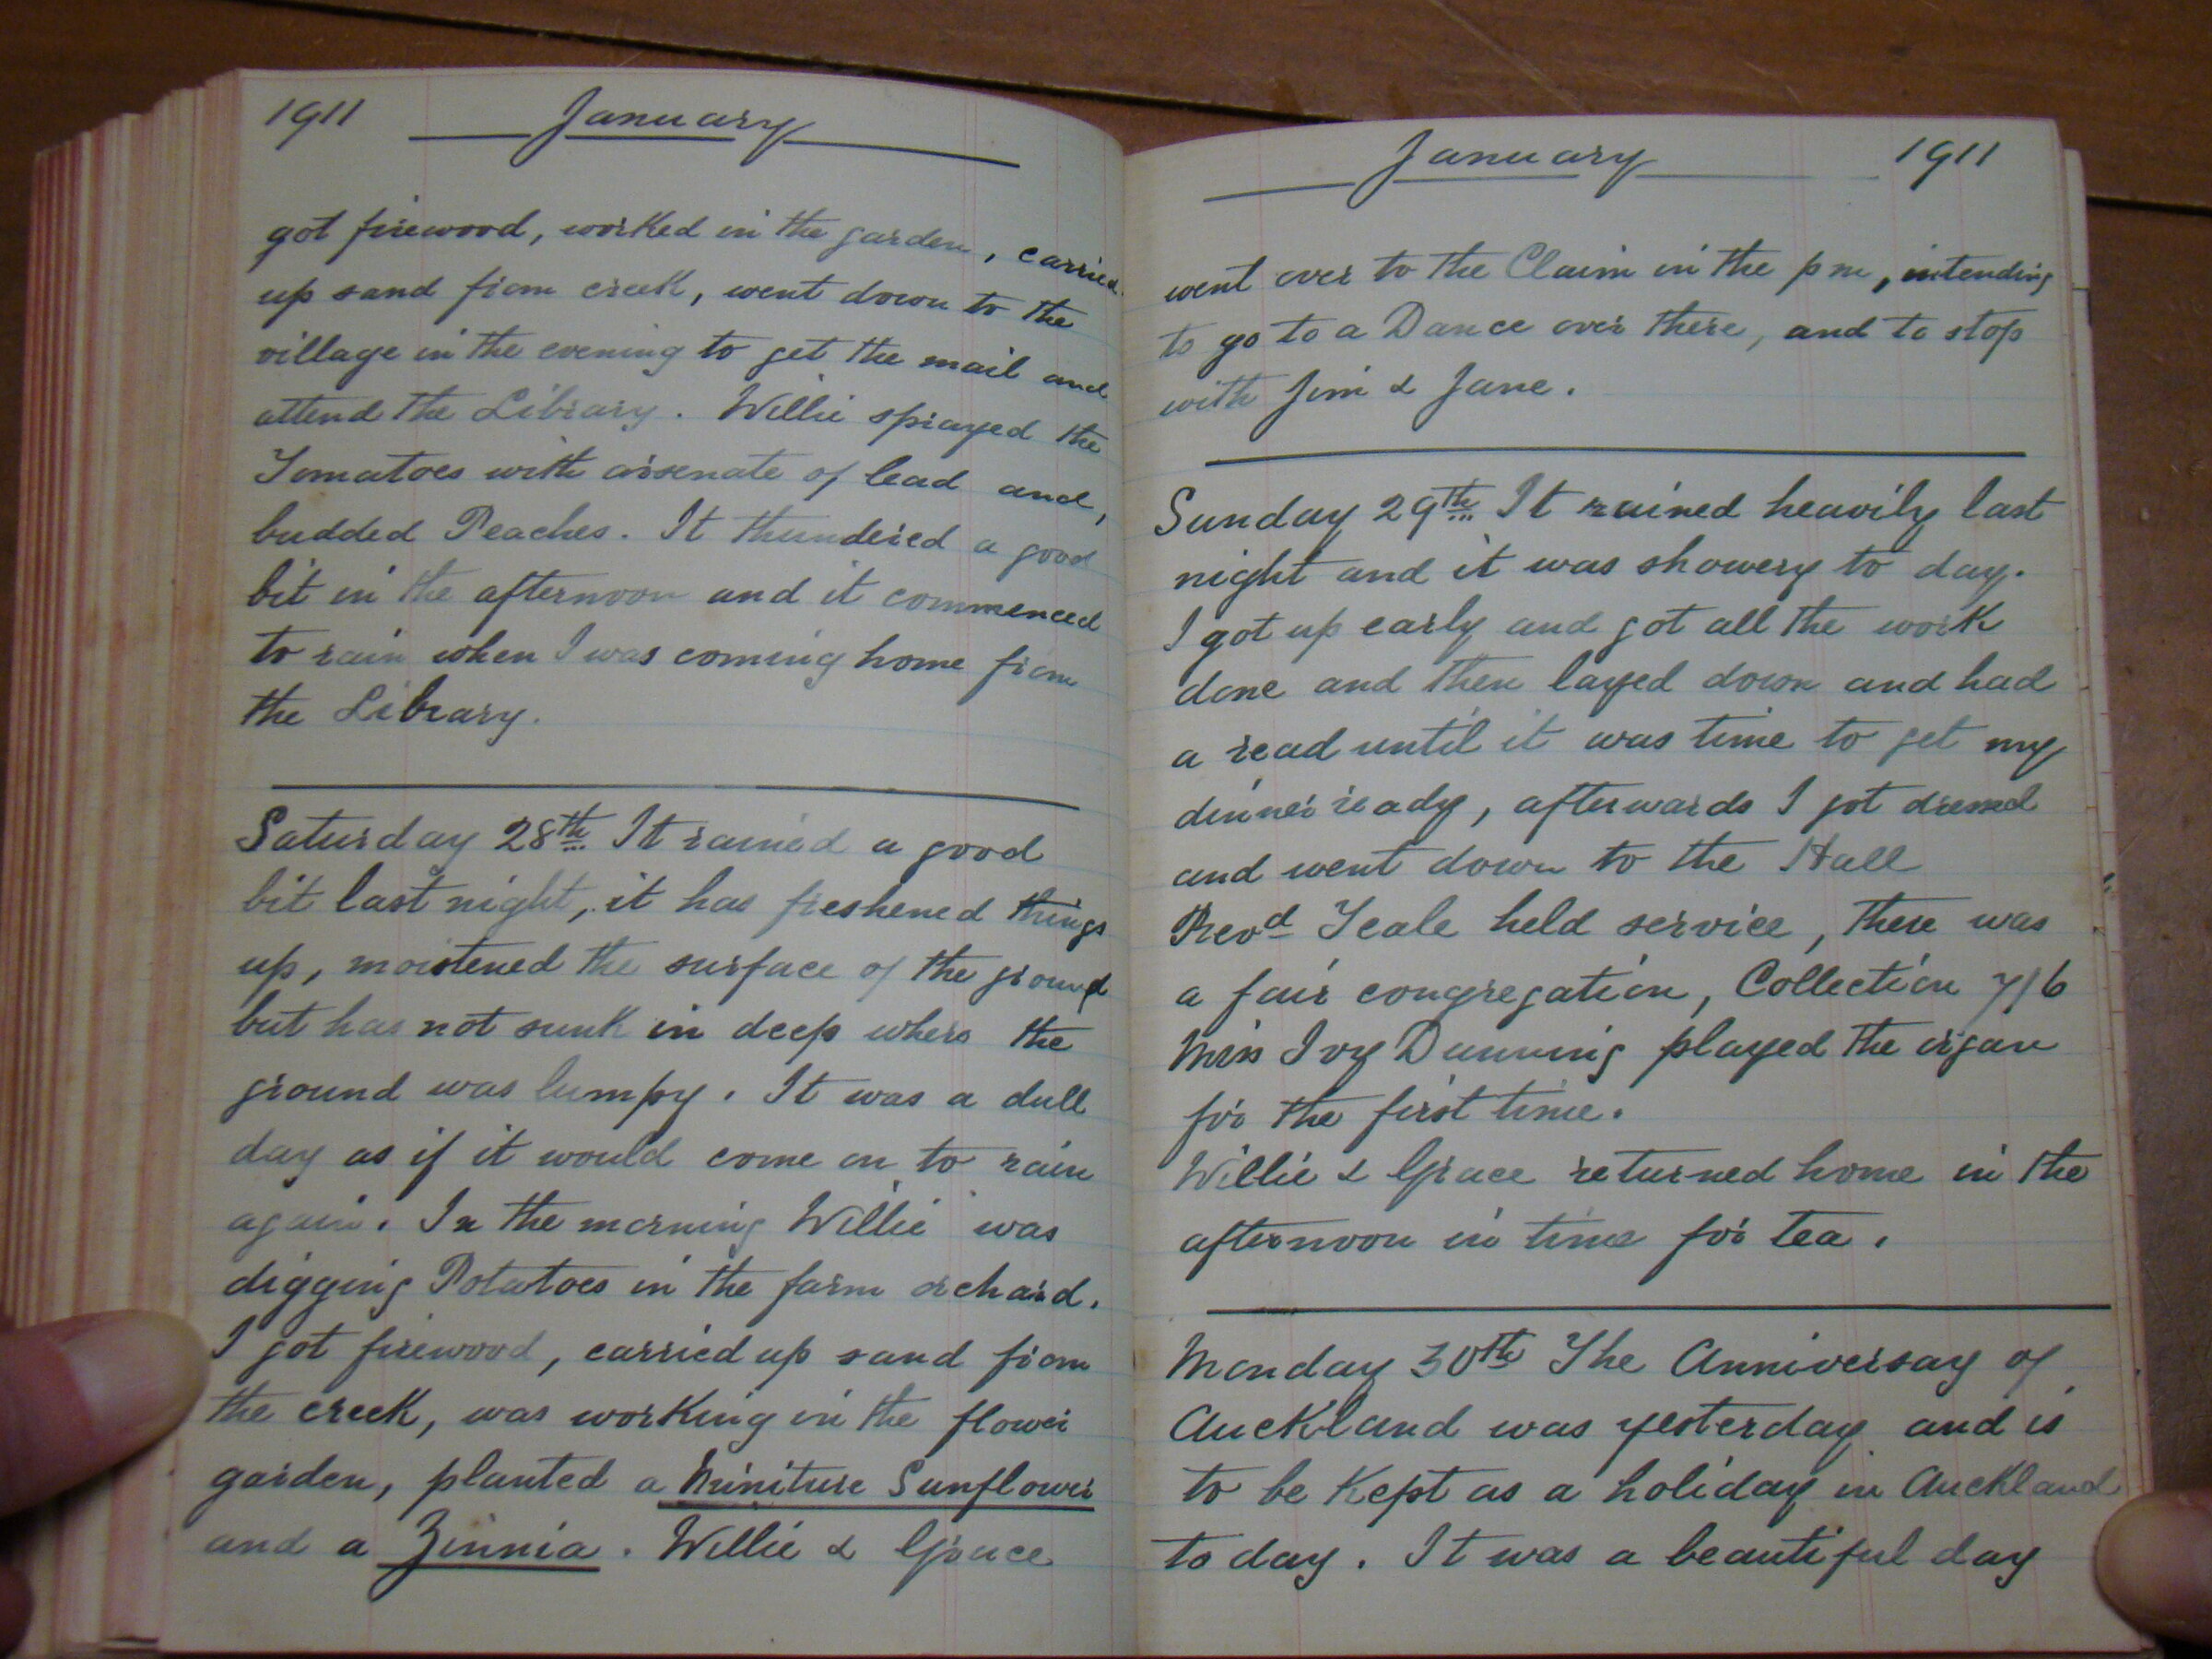 1911 January
got firewood, worked in the garden, carried
up sand from creek, went down to the
village in the evening to get the mail and
attend the Library. Willie sprayed the
Tomatoes with arsenate of lead and,
budded Peaches. It thundered a good
bit in the afternoon and it commenced
to rain when I was coming home from
the Library.
Saturday 28th It rained a good
bit last night, it has freshened things
up, moistened the surface of the ground
but has not sunk in deep where the
ground was lumpy. It was a dull
day as if it would come on to rain
again. In the morning Willie was
digging Potatoes in the farm orchard.
I got firewood, carried up sand from
the creek, was working in the flower
garden, planted a Miniture Sunflower
and a Zinnia. Willie & Grace
January 1911
went over to the Claim in the pm, intending
to go to a Dance over there, and to stop
with Jim & Jane.
Sunday 29th It rained heavily last
night and it was showery to day.
I got up early and got all the work
done and then layed down and had
a read until it was time to get my
dinner ready, afterwards I got dressed
and went down to the Hall
Revd Teale held service, there was
a fair congregation, Collection 7/6
Miss Ivy Dunning played the organ
for the first time.
Willie & Grace returned home in the
afternoon in time for tea.
Monday 30th The Anniversay of
Auckland was yesterday and is
to be kept as a holiday in Auckland
to day. It was a beautiful day